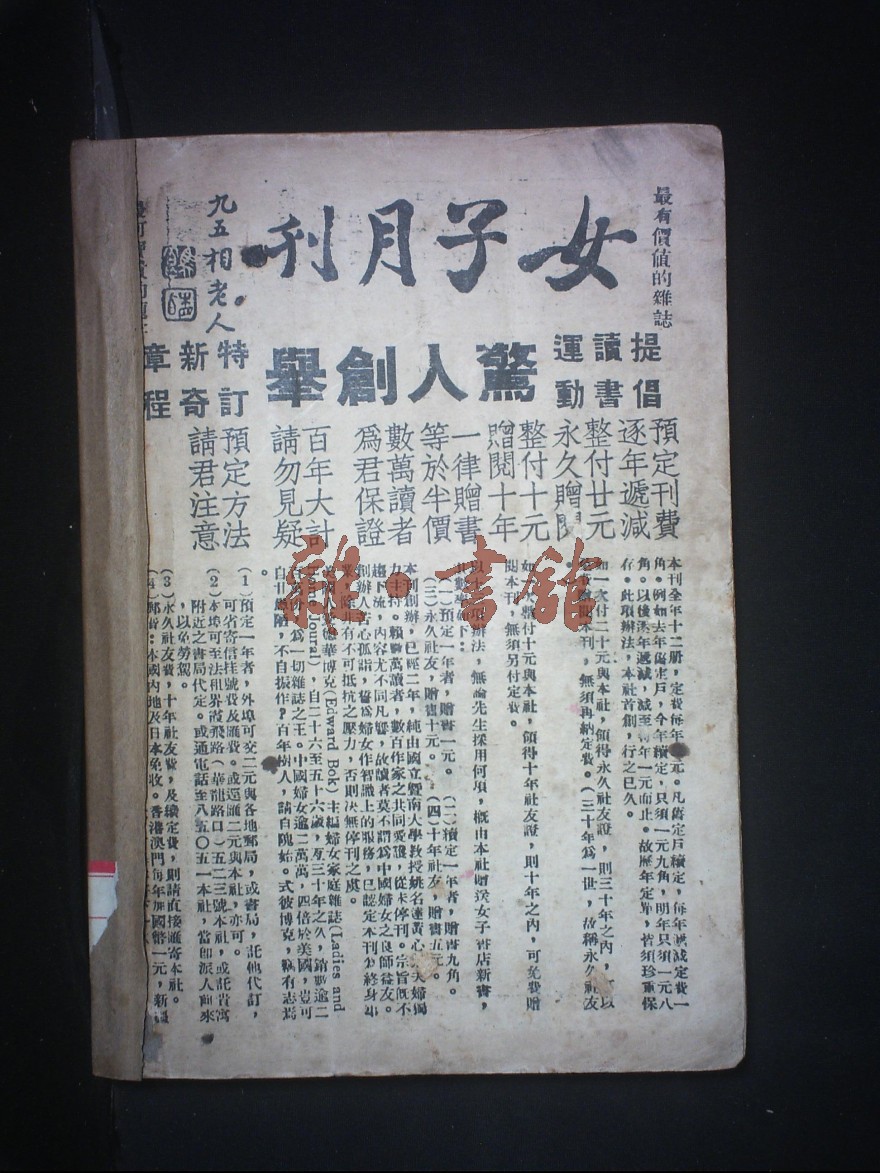 最有價值的雜誌
女子月刊
九五相老人
提倡
讀書
運動
驚人創舉
特訂
新奇
章程
預定刊費
逐年遞減
整付廿元
永久贈閱
整付十元
贈閱十年
一律贈書
等於半價
數萬讀者
爲君保證
百年大計
請勿見疑
預定方法
請君注意
本刊全年十二册，定費每年元。凡舊定戶續定，每年遞減定費一
角。例如去年舊定戶，今年續定，只須一元九角，明年只須一元八
角。以後逐年遞減，減至每年一元而止。故歷年定單，皆須珍重保
存。此項辦法，本社首創，行之已久。
如一次付二十元與本社，領得永久社友證，則三十年之內，以
本刊，無須再納定費。（三十年爲一世，故稱永久社友
。）
如整付十元與本社，領得十年社友證，則十年之內，可免費贈
閱本刊，無須另付定費。
以上項辦法，無論先生採用何項，概由本社贈送女子書店新書，
其數如下：
（一）預定一年者，贈書一元。（二）續定一年者，贈書九角。
（三）永久社友，贈書十元。（四）十年社友，贈書五元。
本刊創辦，已經二年，純由國立暨南大學教授姚名達黃心夫婦獨
力主持。賴數萬讀者，數百作家之共同愛護，從未停刊。宗旨既不
趨下流，內容尤不同凡響，故讀者莫不謂爲中國婦女之良師益友。
創辦人苦心孤詣，誓爲婦女作智識上的服務，已認定本刊爲終身事
業，除非有不可抵抗之壓力，否則决無停刊之虞。
美國人德華博克(Edward Bok)主編婦女家庭雜誌(Ladies and
Home Joural)，自二十六至五十六歲，亙三十年之久，銷數逾二
百萬份，爲一切雜誌之王。中國婦女逾二萬萬，四倍於美國，豈可
自甘，不自振作？百年樹人，請自隗始。式彼博克，竊有志焉
。
（1）預定一年者，外埠可交二元與各地郵局，或書局，託他代訂，
可省寄信挂號費及匯費。或逕匯二元與本社，亦可。
（2）本埠可至法租界霞飛路（華龍路口）五二三號本社，或託貴寓
附近之書局代定。或通電話至八五〇五一本社，當卽派人前來
，以免勞駕。
（3）永久社友費，十年社友費，及續定費，則請直接匯寄本社。
（4）郵費：本國內地及日本免收。香港澳門每年加國幣一元，新疆
雜·書館